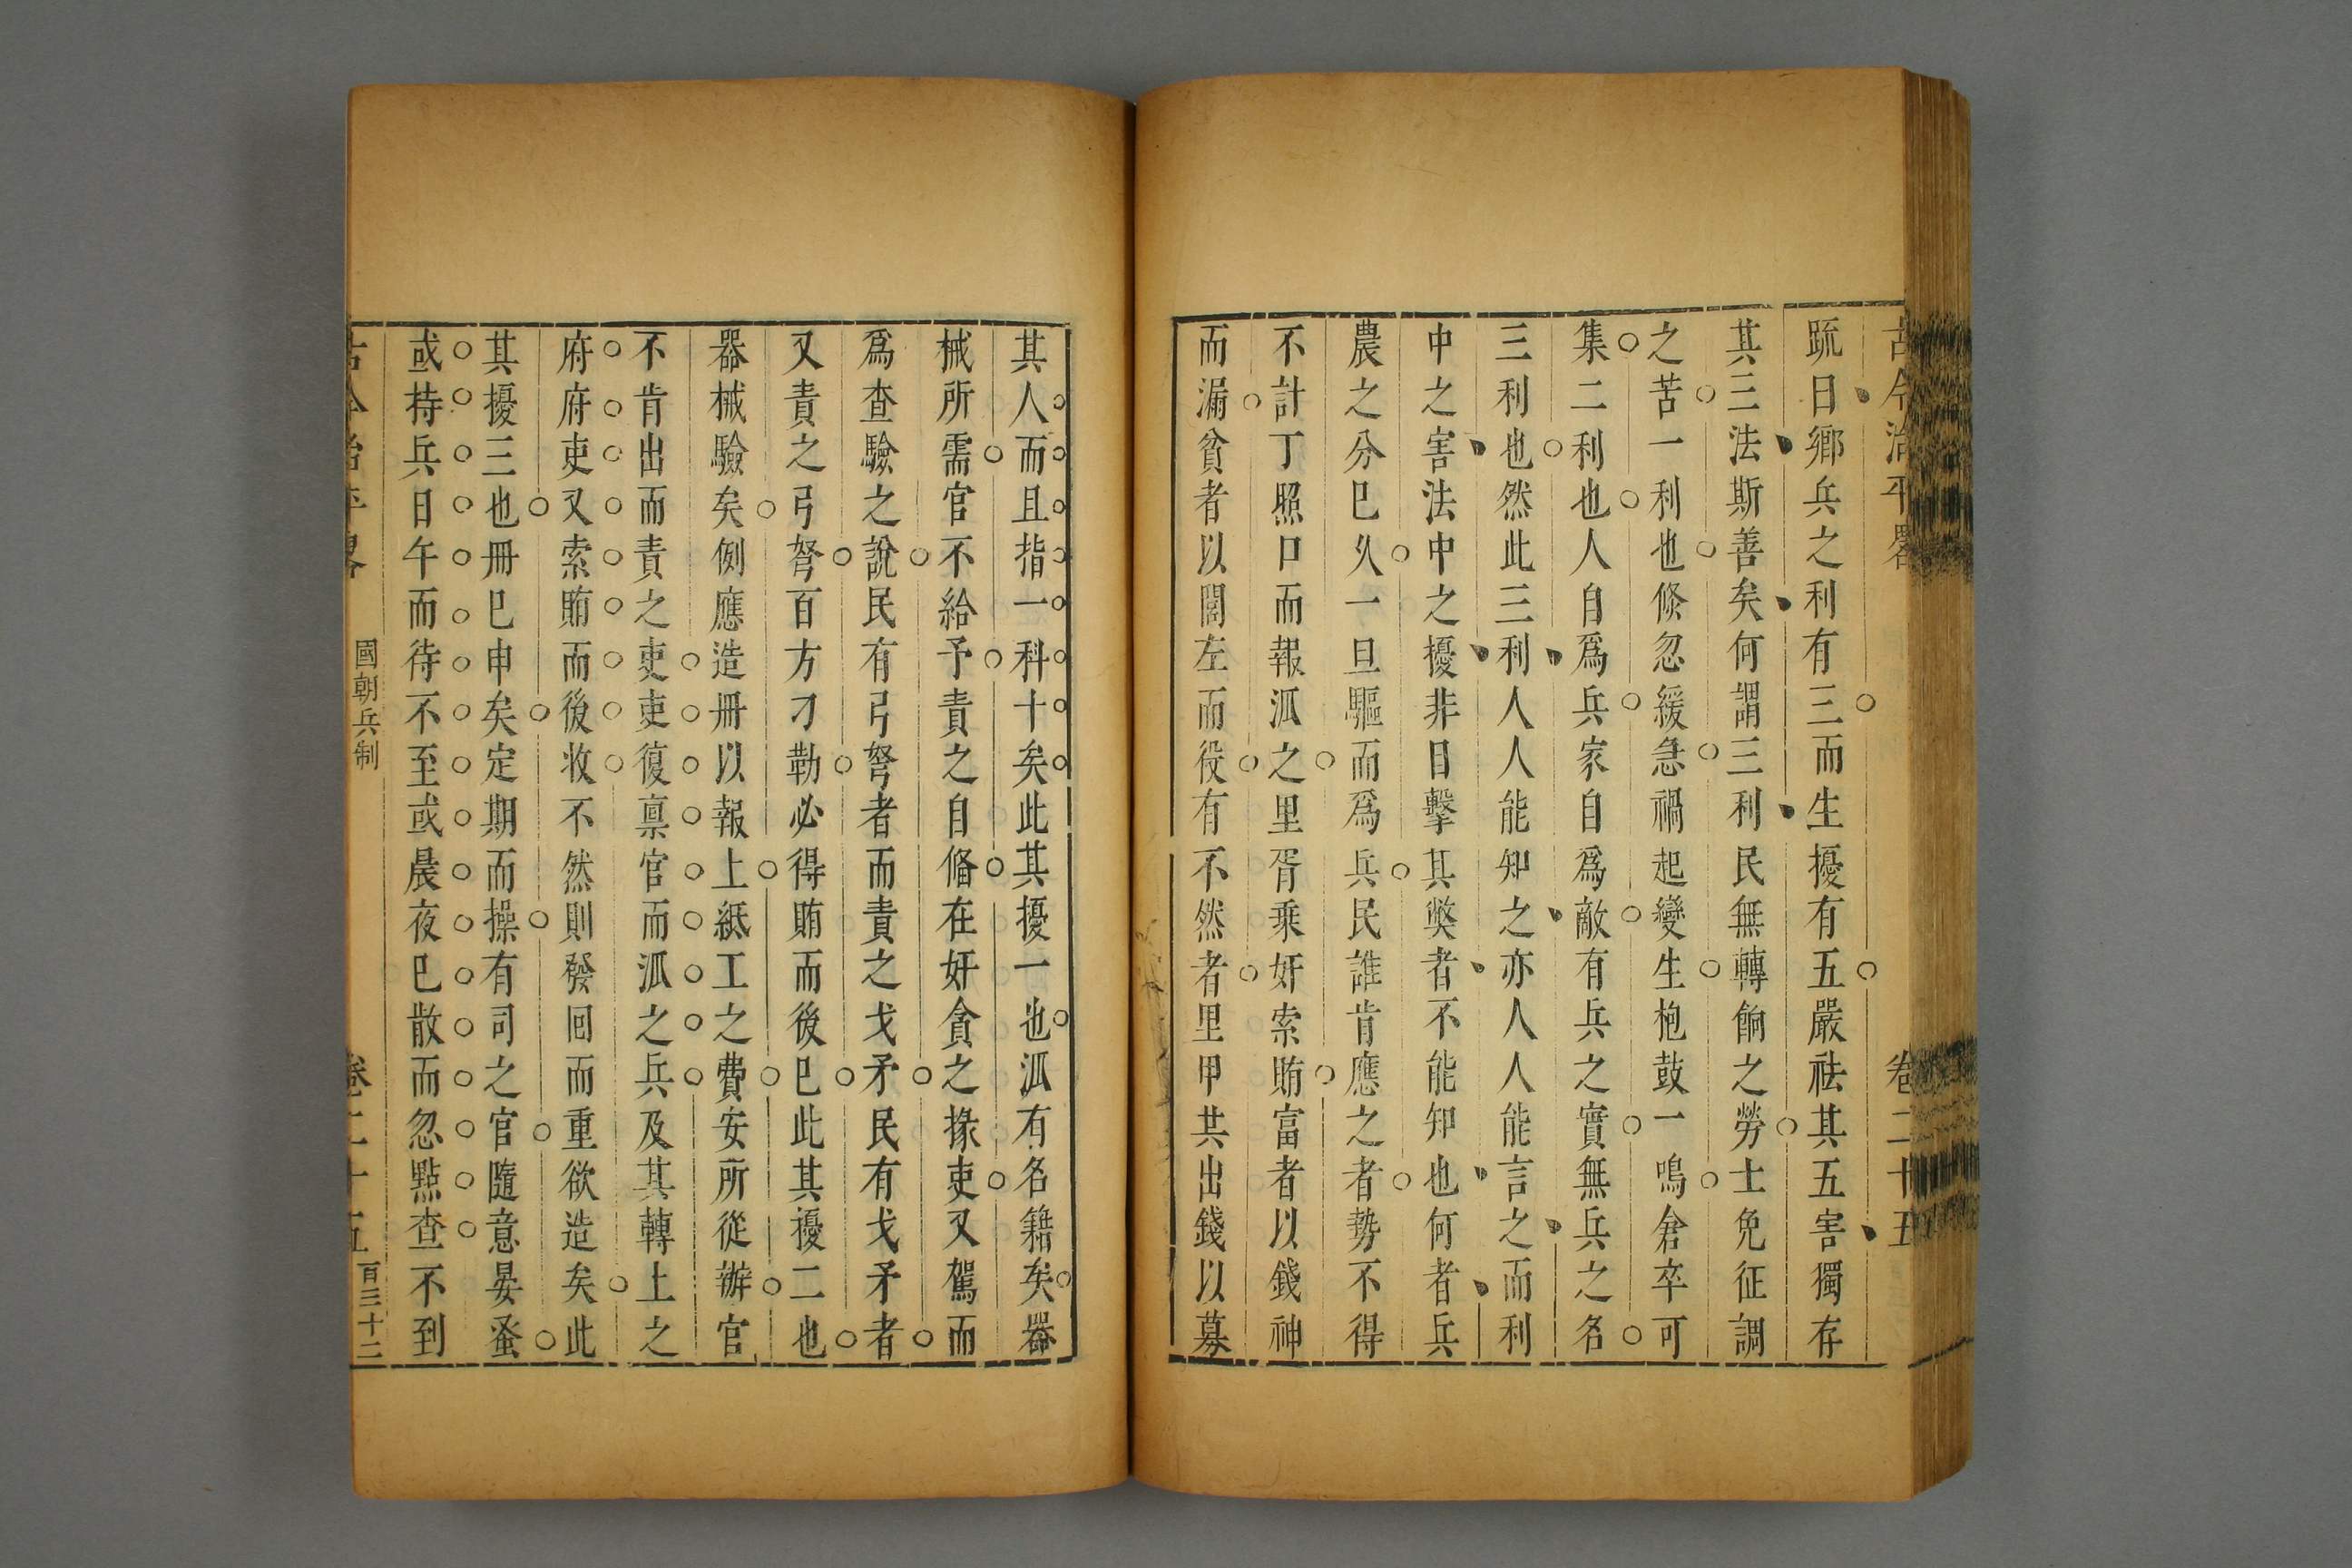 古今治平畧 卷二十五
疏曰鄉兵之利有三而生擾有五嚴祛其五害獨存
其三法斯善矣何謂三利民無轉餉之勞士免征調
之苦一利也倐忽緩急禍起變生枹鼓一鳴倉卒可
集二利也人自爲兵家自爲敵有兵之實無兵之名
三利也然此三利人人能知之亦人人能言之而利
中之害法中之擾非日擊其獘者不能知也何者兵
農之分巳久一旦驅而爲兵民誰肯應之者勢不得
不計丁照口而報派之里胥乘奸索賄富者以錢神
而漏貧者以閭左而役有不然者里甲共出錢以募
其人而且指一科十矣此其擾一也派有名籍矣器
械所需官不給予責之自備在奸貪之掾吏又駕而
爲查驗之說民有弓弩者而責之戈矛民有戈矛者
又責之弓弩百方刁勒必得賄而後巳此其擾二也
器械驗矣例應造冊以報上紙工之費安所從辦官
不肯出而責之吏吏復稟官而派之兵及其轉上之
府府吏又索賄而後收不然則發回而重欲造矣此
其擾三也冊巳申矣定期而操有司之官隨意晏蚤
或持兵日午而待不至或晨夜巳散而忽點查不到
古今治平畧 國朝兵制 卷二十五 百三十二